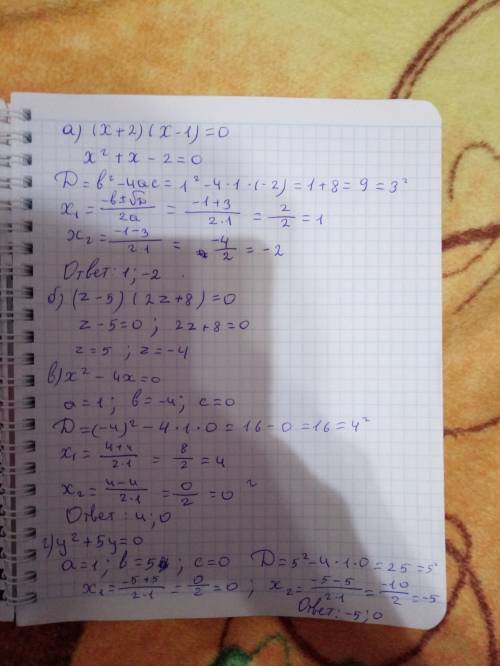 а) (x+2)(x-1)=0
x²+x-2=0
D=b²-4ac=1²-4·1·(-2)=1+8=9=3²
x₁=(-b±√D)/2a=(-1+3)/2·1=2/2=1
x₂=(-1-3)/2·1=-4/2=-2
Ответ: 1; -2
б) (z-5)(2z+8)=0
z-5=0; 2z+8=0
z=5; z=-4
в) x²-4x=0
a=1; b=-4; c=0
D=(-4)²-4·1·0=16-0=16=4²
x₁=(4+4)/2·1=8/2=4
x₂=(4-4)/2·1=0/2=0
Ответ: 4; 0
г) y²+5y=0
a=1; b=5; c=0 D=5²-4·1·0=25=5²
x₁=(-5+5)/2·1=0/2=0; x₂=(-5-5)/2·1=-10/2=-5
Ответ: -5; 0